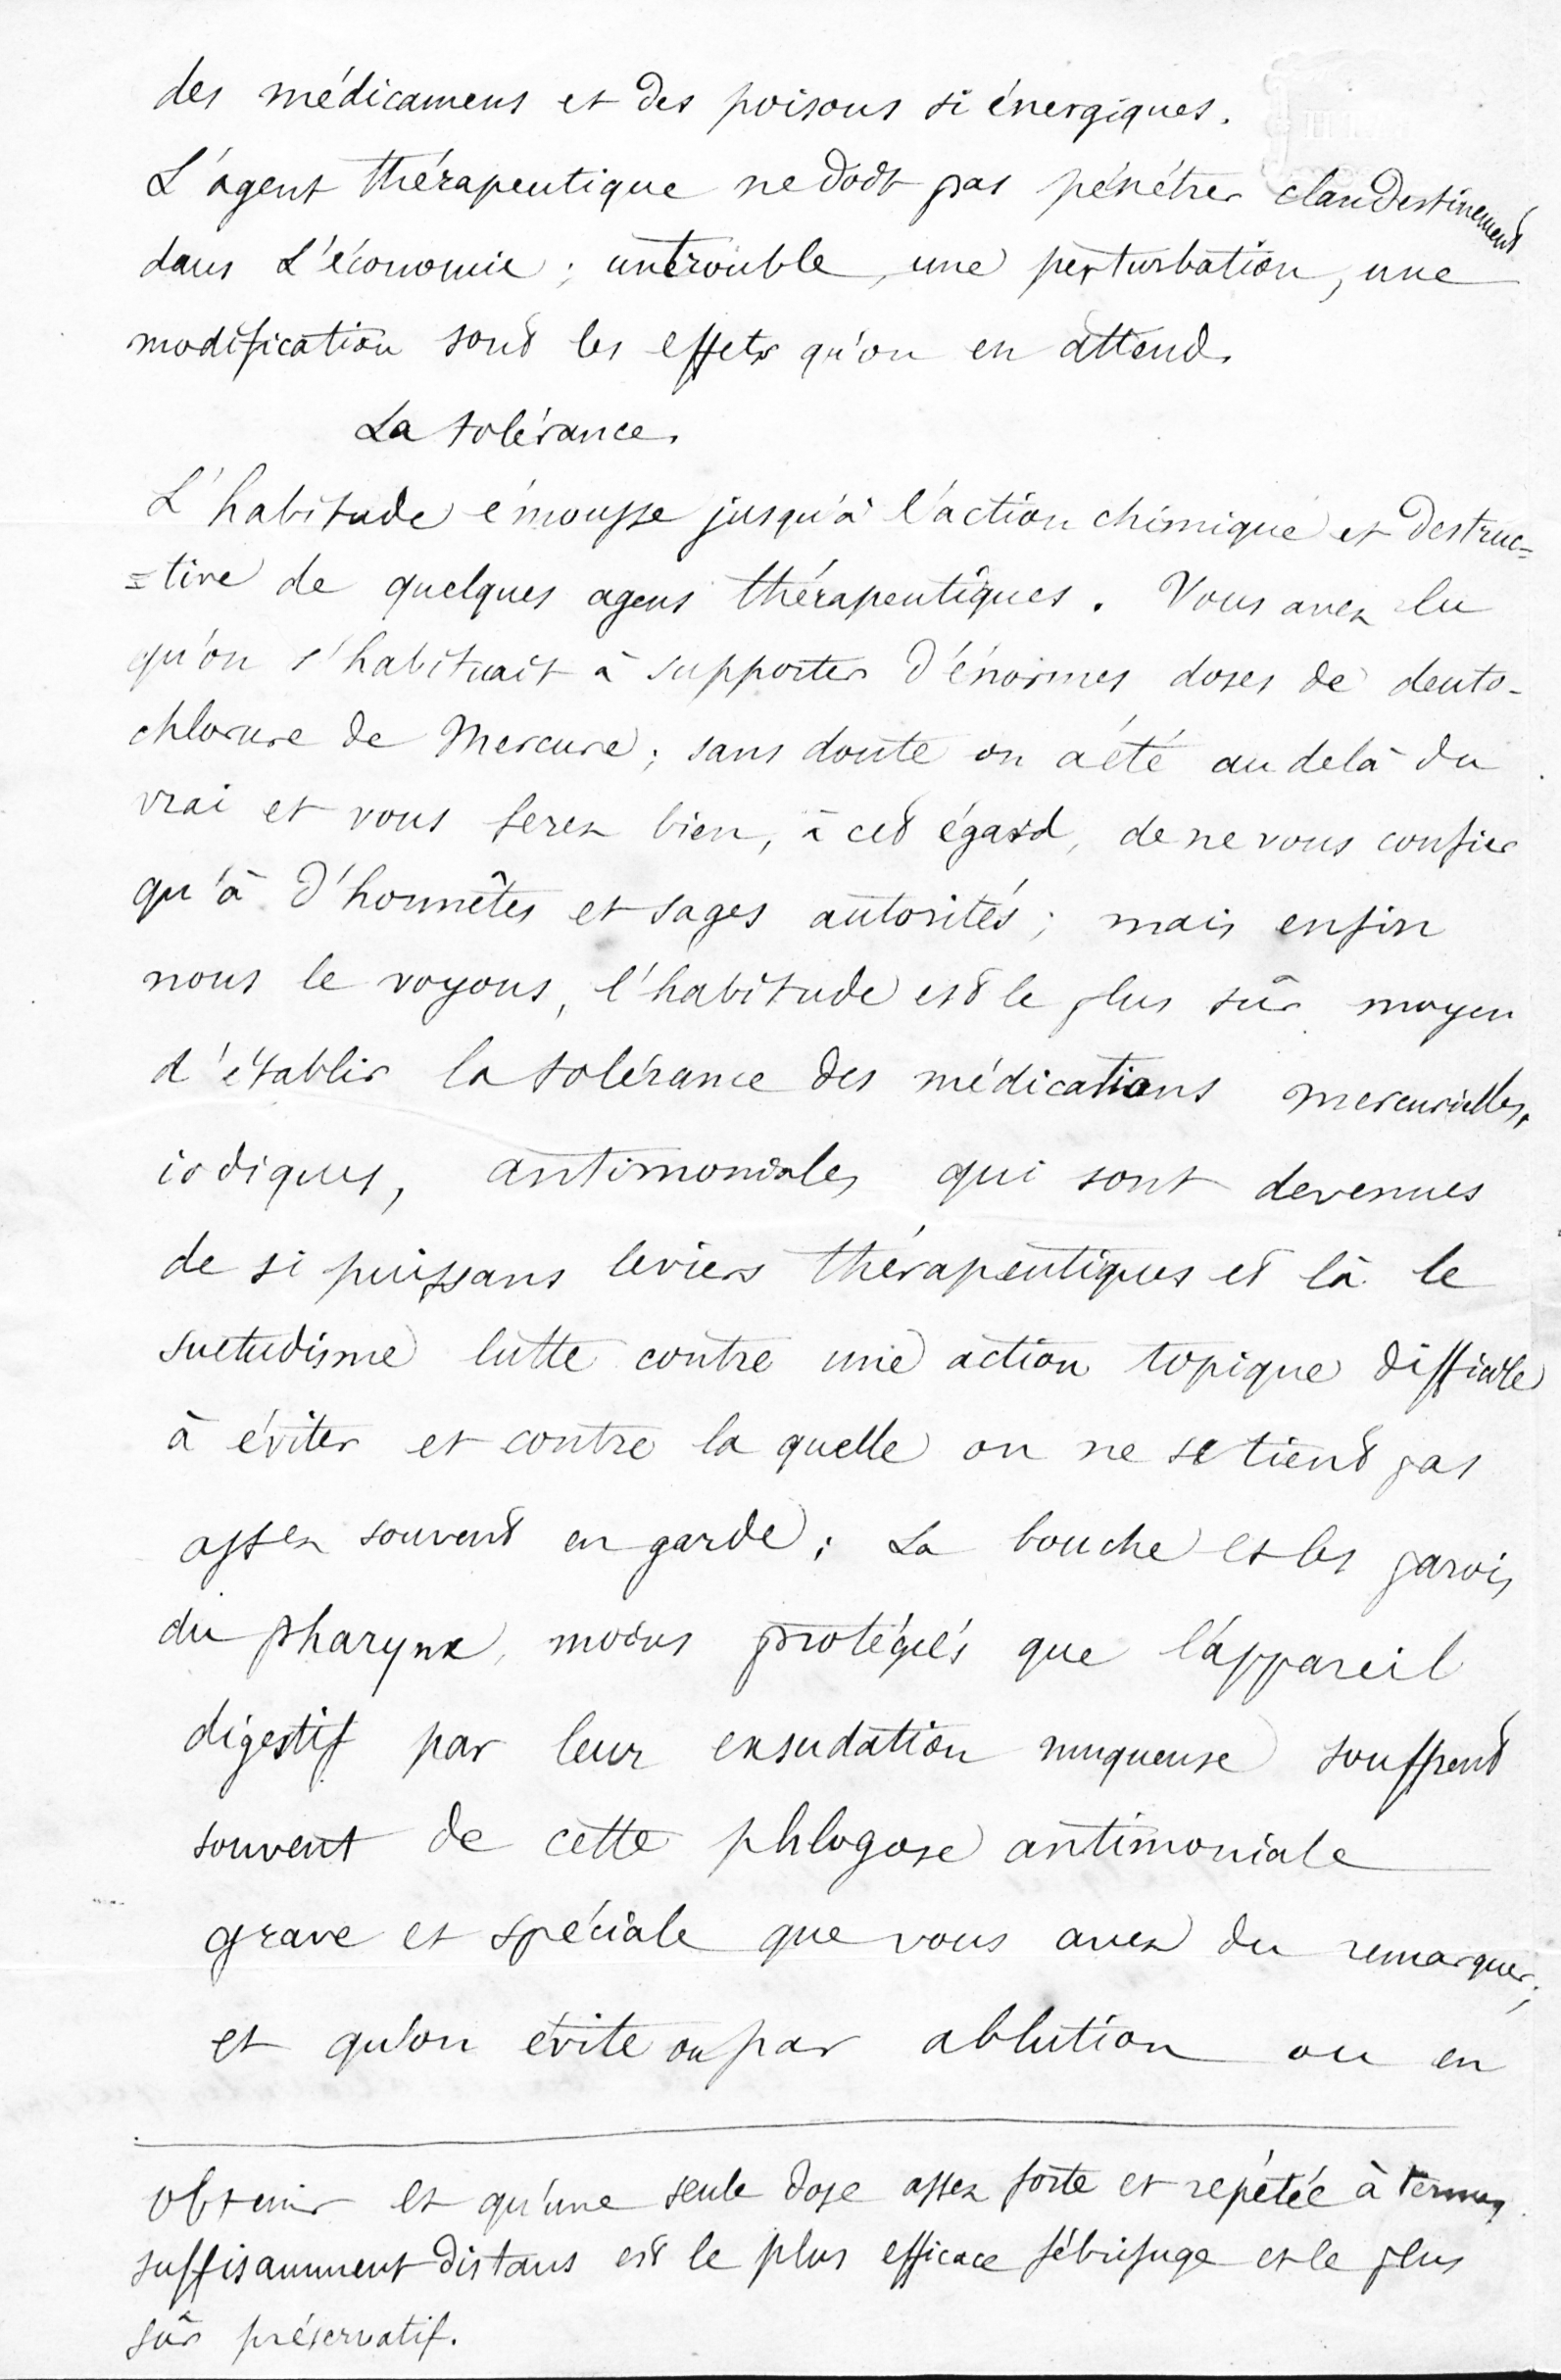 des médicamens et des poisons si énergiques.
L'agent thérapeutique ne doit pas pénétrer clandestinement
dans l'économie ; un trouble, une perturbation, une
modification sont les effets qu'on en attend.
La tolérance.
L'habitude émousse jusqu'à l'action chimique et destruc=
=tive de quelques agens thérapeutiques. Vous avez lu
qu'on s'habituait à supporter d'énormes doses de deuto-
chlorure de Mercure ; sans doute on a été au delà du
vrai et vous ferez bien, à cet égard, de ne vous confier
qu'à d'honnêtes et sages autorités ; mais enfin
nous le voyons, l'habitude est le plus sûr moyen
d'établir la tolérance des médications mercurielles,
iodiques, antimoniales qui sont devenues
de si puissans leviers thérapeutiques et là le
suetudisme lutte contre une action topique difficile
à éviter et contre la quelle on ne se tient pas
assez souvent en garde ; La bouche et les parois
du pharynx, moins protégés que l'appareil
digestif par leur exsudation muqueuse souffrent
souvent de cette phlogose antimoniale
grave et spéciale que vous avez du remarquer ;
et qu'on évite ou par ablution ou en
obtenir et qu'une seule dose assez forte et repétée à termes
suffisamment distans est le plus efficace fébrifuge et le plus
sûr préservatif.